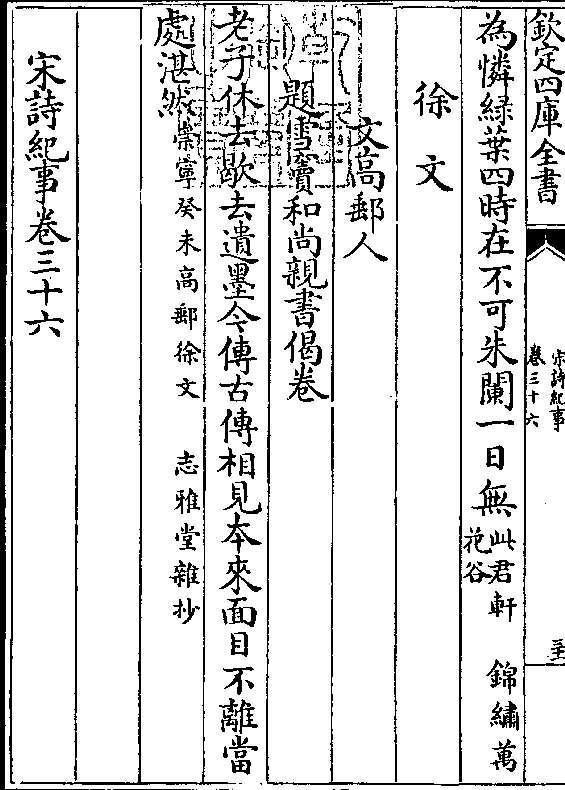 欽定四庫全書
宋詩紀事
卷三十六
為憐緑葉四時在不可朱闌一日無此君軒　錦繡萬
花谷
徐文
文高郵人
題雪竇和尚親書偈卷
老子休去歇去遺墨今傳古傳相見本來面目不離當
處湛然崇寧癸未高郵徐文　志雅堂雜抄
宋詩紀事卷三十六